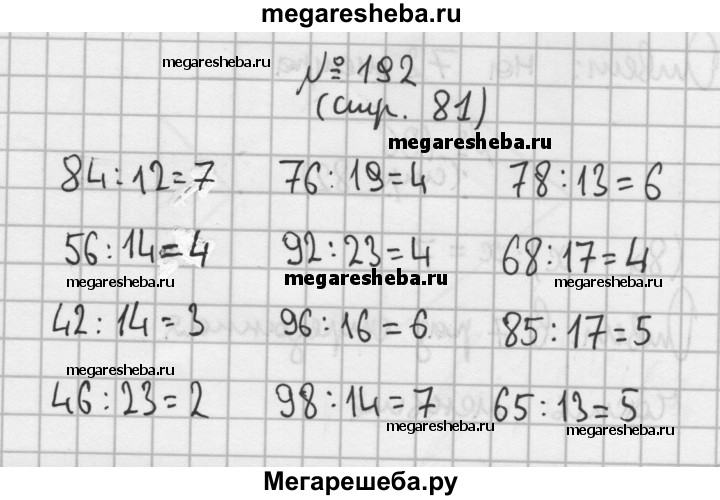 megaresheba.ru
megaresheba.ru
№ 192
(стр. 81)
megaresheba.ru
84:12=7 76:19=4 78:13=6
56:14=4 92:23=4 68:17=4
megaresheba.ru megaresheba.ru megaresheba.ru
42:14=3 96:16=6 85:17=5
megaresheba.ru
46:23=2 98:14=7 65:13=5
megaresheba.ru megaresheba.ru
Мегарешеба.ру